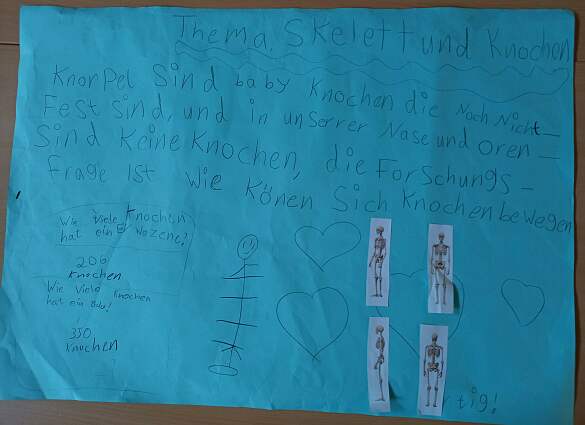 Thema. Skelett und Knochen
Knorpel sind baby Knochen die Noch Nicht
Fest sind, und in unserrer Nase und oren
Sind Keine Knochen, die Forschungs-
frage ist wie Könen Sich Knochen bewegen
Wie viele Knochen
hat ein
206
Knochen
Wie viele Knochen
hat ein Baby!
350
Knochen
tig!